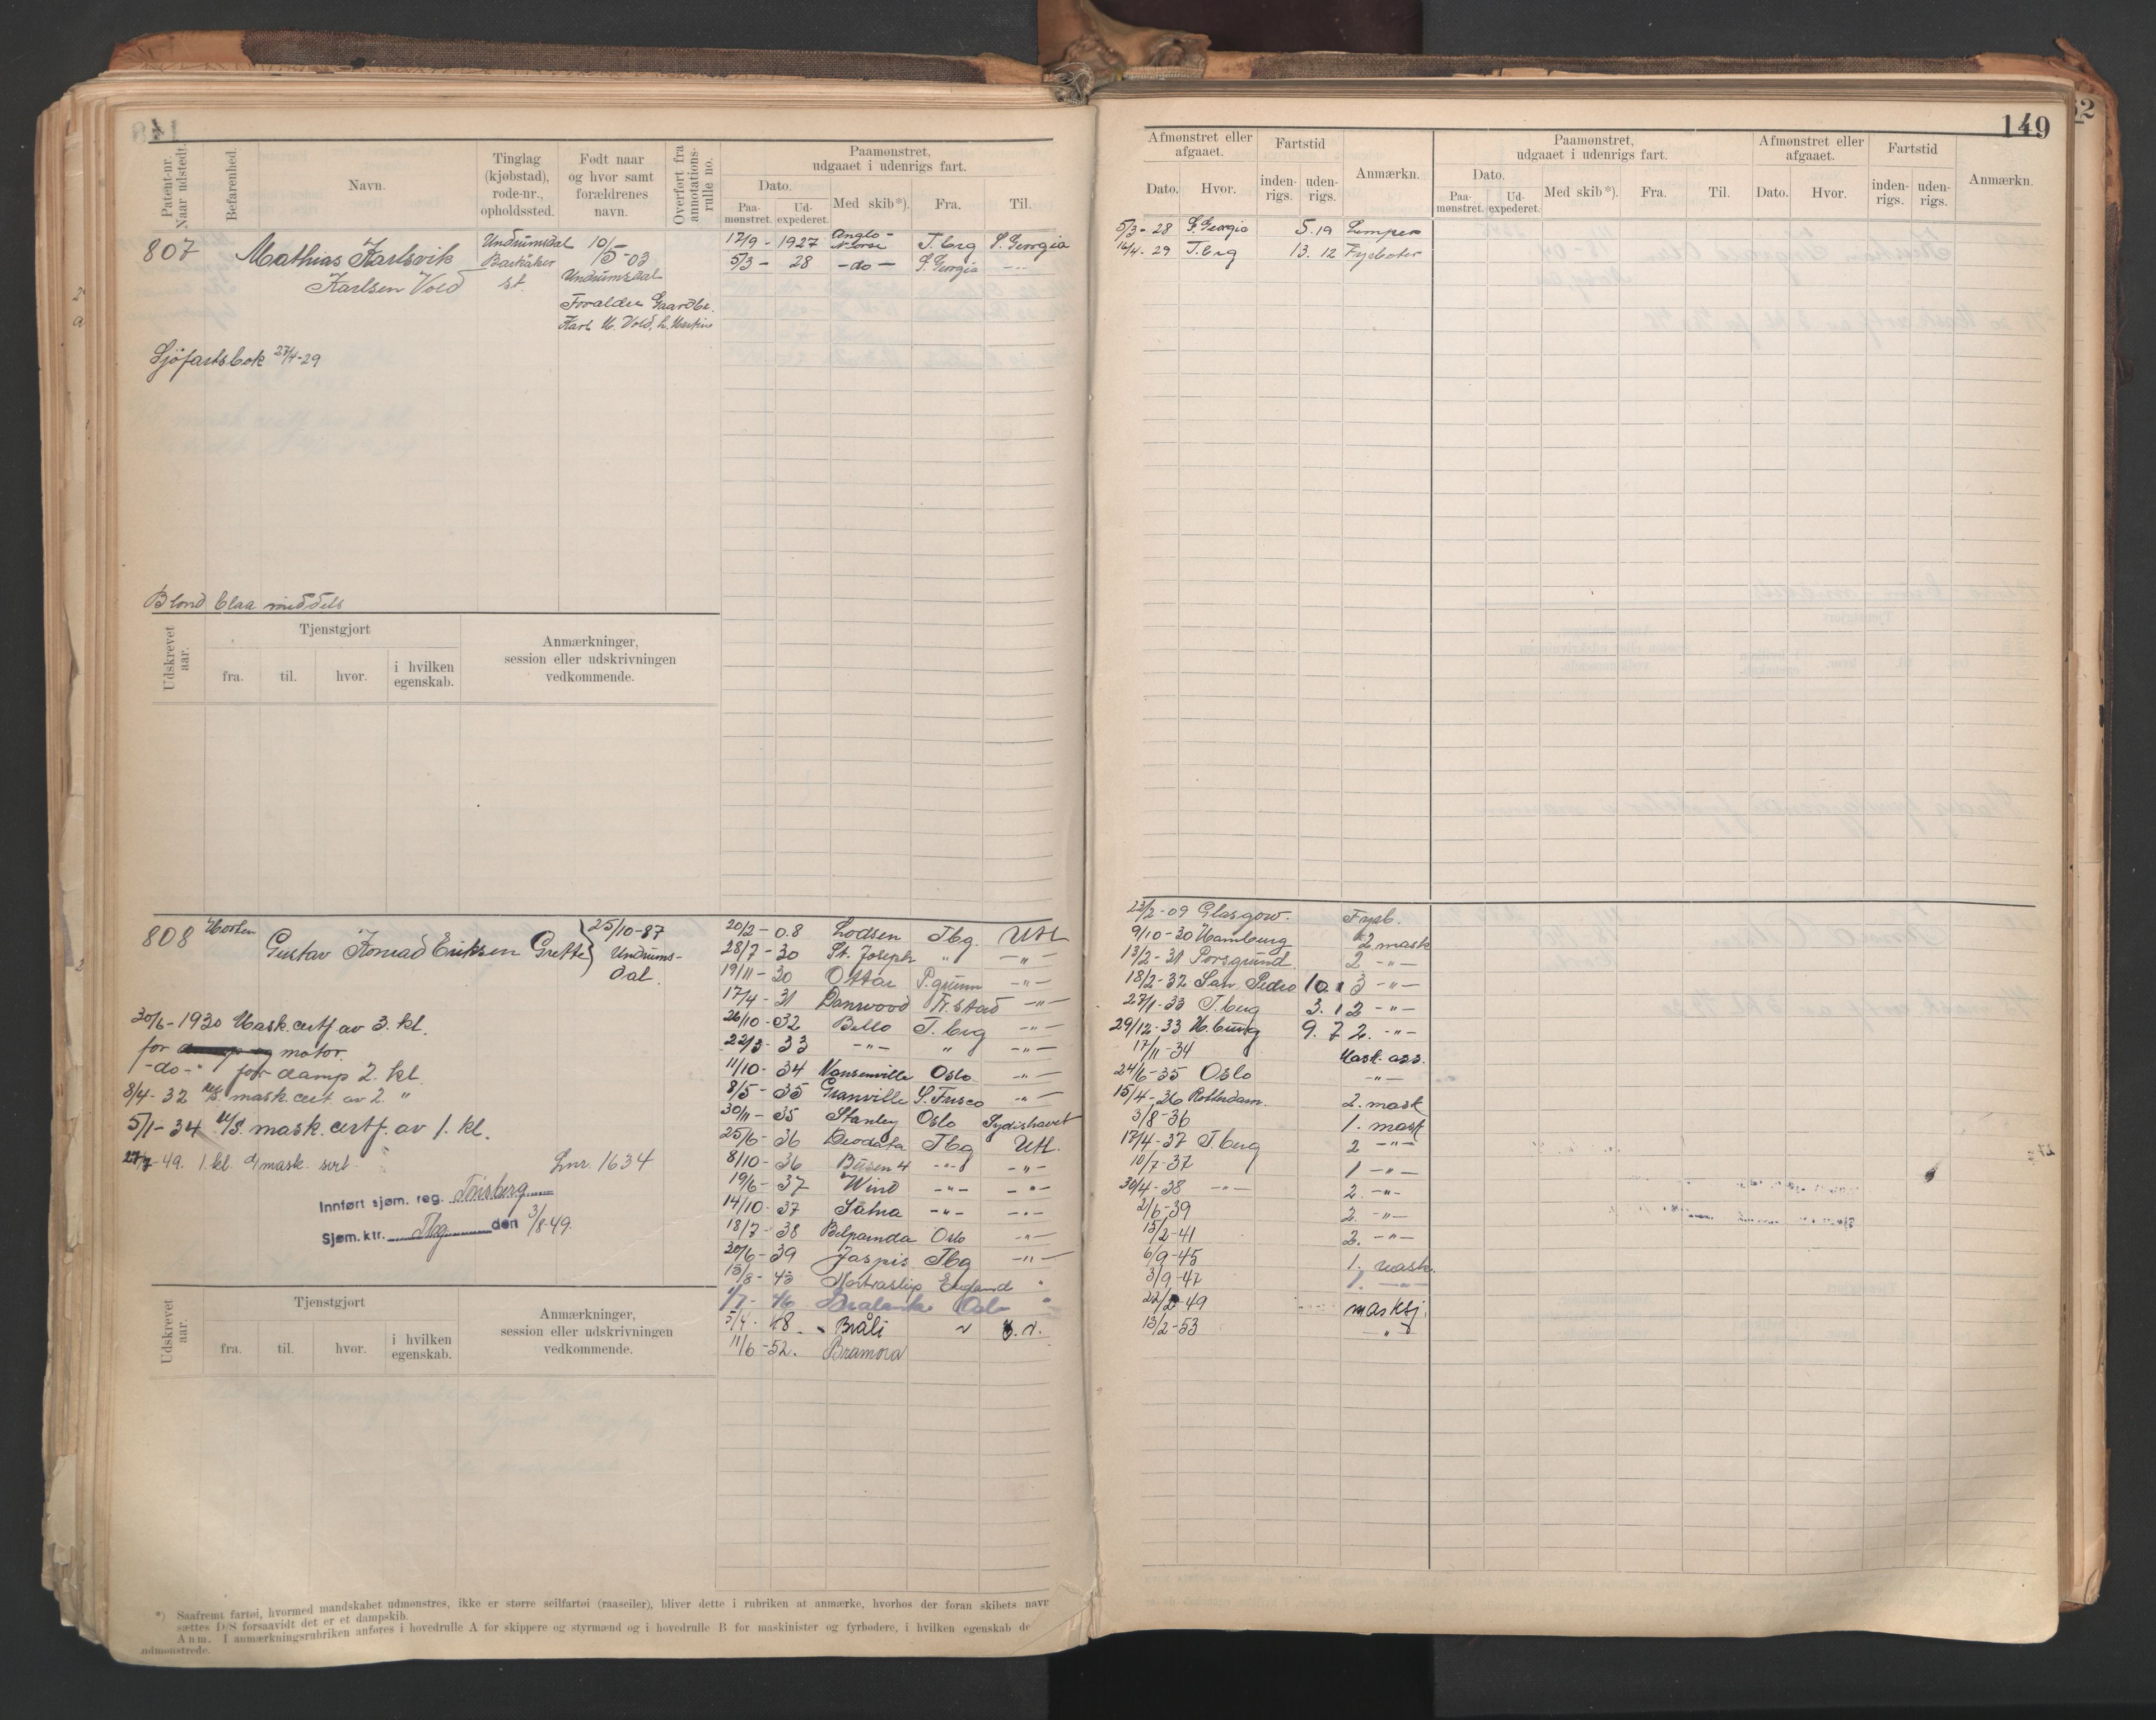 149
Patent-nr. Naar udstedt.
Befarenhed.
Navn.
Tinglag (kjøbstad), rode-nr., opholdssted.
Født naar og hvor samt forældrenes navn.
Overført fra annotations-rulle no.
Paamønstret, udgaaet i udenrigs fart.
Dato.
Paa-mønstret.
Ud-expederet.
Med skib*).
Fra.
Til.
Afmønstret eller afgaaet.
Dato.
Hvor.
Fartstid
inden-rigs.
uden-rigs.
Anmærkn.
Paamønstret, udgaaet i udenrigs fart.
Dato.
Paa-mønstret.
Ud-expederet.
Med skib*).
Fra.
Til.
Afmønstret eller afgaaet.
Dato.
Hvor.
Fartstid
inden-rigs.
uden-rigs.
Anmærkn.
807
Mathias Karlsvik
Karlsen Vold
Undrumsdal
Barkåker
st.
10/5-03
Undrumsdal
Foraldre Gaardbr.
Karl M. Vold, h. Martine
17/9 - 1927 Anglo-Norse T.berg S. Georgia
5/3 - 28 -do- S. Georgia -"-
5/3 - 28 S. Georgia 5. 19 Lemper
16/4. 29 T.brg 13. 12 Fyrbøter
Sjøfartsbok 27/4-29
Blond blaa middels
Udskrevet aar.
Tjenstgjort
fra.
til.
hvor.
i hvilken egenskab.
Anmærkninger, session eller udskrivningen vedkommende.
808
Horten
Gustav Konrad Eriksen Grette
25/10-87
Undrums-
dal.
30/6-1930 Mask.certf av 3. kl.
for motor.
-do- for damp 2. kl.
8/4-32 mask.cert. av 2. "
5/1-34 M/S. mask. certf. av 1. kl.
27/7-49. 1. kl. mask. sert. Lnr. 1634
Innført sjøm. reg. Tønsberg
Sjøm.ktr. Tbg den 3/8-49.
20/2 - 08 Lodsen Tbg. Utl
28/7 - 30 St. Joseph " -"-
19/11 - 30 Ottar P.grunn -"-
17/4 - 31 Danwood Fr.stad -"-
26/10 - 32 Bello T.berg -"-
22/3 - 33 -"- " -"-
11/10 - 34 Nansenville Oslo -"-
8/5 - 35 Granville S. Frisco -"-
30/11 - 35 Stanley Oslo Sydishavet
25/6 - 36 Deodata Tbg Utl.
8/10 - 36 Busen 4 -"- -"-
19/6 - 37 Wind -"- -"-
14/10 - 37 Sætra -"- -"-
18/7 - 38 Belpamela Oslo -"-
20/6 - 39 Jaspis Tbg -"-
15/8 - 43 Nortraship England "
1/7 - 46 Bralanta Oslo "
5/4 - 48 Bråli
11/6 - 52. Bramora
22/2 - 09 Glasgow. Fyrb.
9/10 - 30 Hamburg 2 mask
13/2 - 31 Porsgrund. 2 -"-
18/2 - 32 San Pedro 10. 1 3 -"-
27/1 - 33 T.berg 3. 1 2 -"-
29/12 - 33 H.burg 9. 7 2. -"-
17/11 - 34 Mask. ass.
24/6 - 35 Oslo -"-
15/4 - 36 Rotterdam. 2. mask
3/8 - 36 1. mask
17/4 - 37 T.berg 2 -"-
10/7 - 37 1 -"-
30/4 - 38 -"- 2. -"-
2/6 - 39 2. -"-
15/2 - 41 2. -"-
6/9 - 45 1. mask.
3/9 - 47 1. -"-
22/2 49 masksj.
13/2 - 53 -"-
Udskrevet aar.
Tjenstgjort
fra.
til.
hvor.
i hvilken egenskab.
Anmærkninger, session eller udskrivningen vedkommende.
*) Saafremt fartøi, hvormed mandskabet udmønstres, ikke er større seilfartøi (raaseiler), bliver dette i rubriken at anmærke, hvorhos der foran skibets navn
sættes D/S forsaavidt det er et dampskib.
Anm. I anmærkningsrubriken anføres i hovedrulle A for skippere og styrmænd og i hovedrulle B for maskinister og fyrbødere, i hvilken egenskab de
udmønstrede.